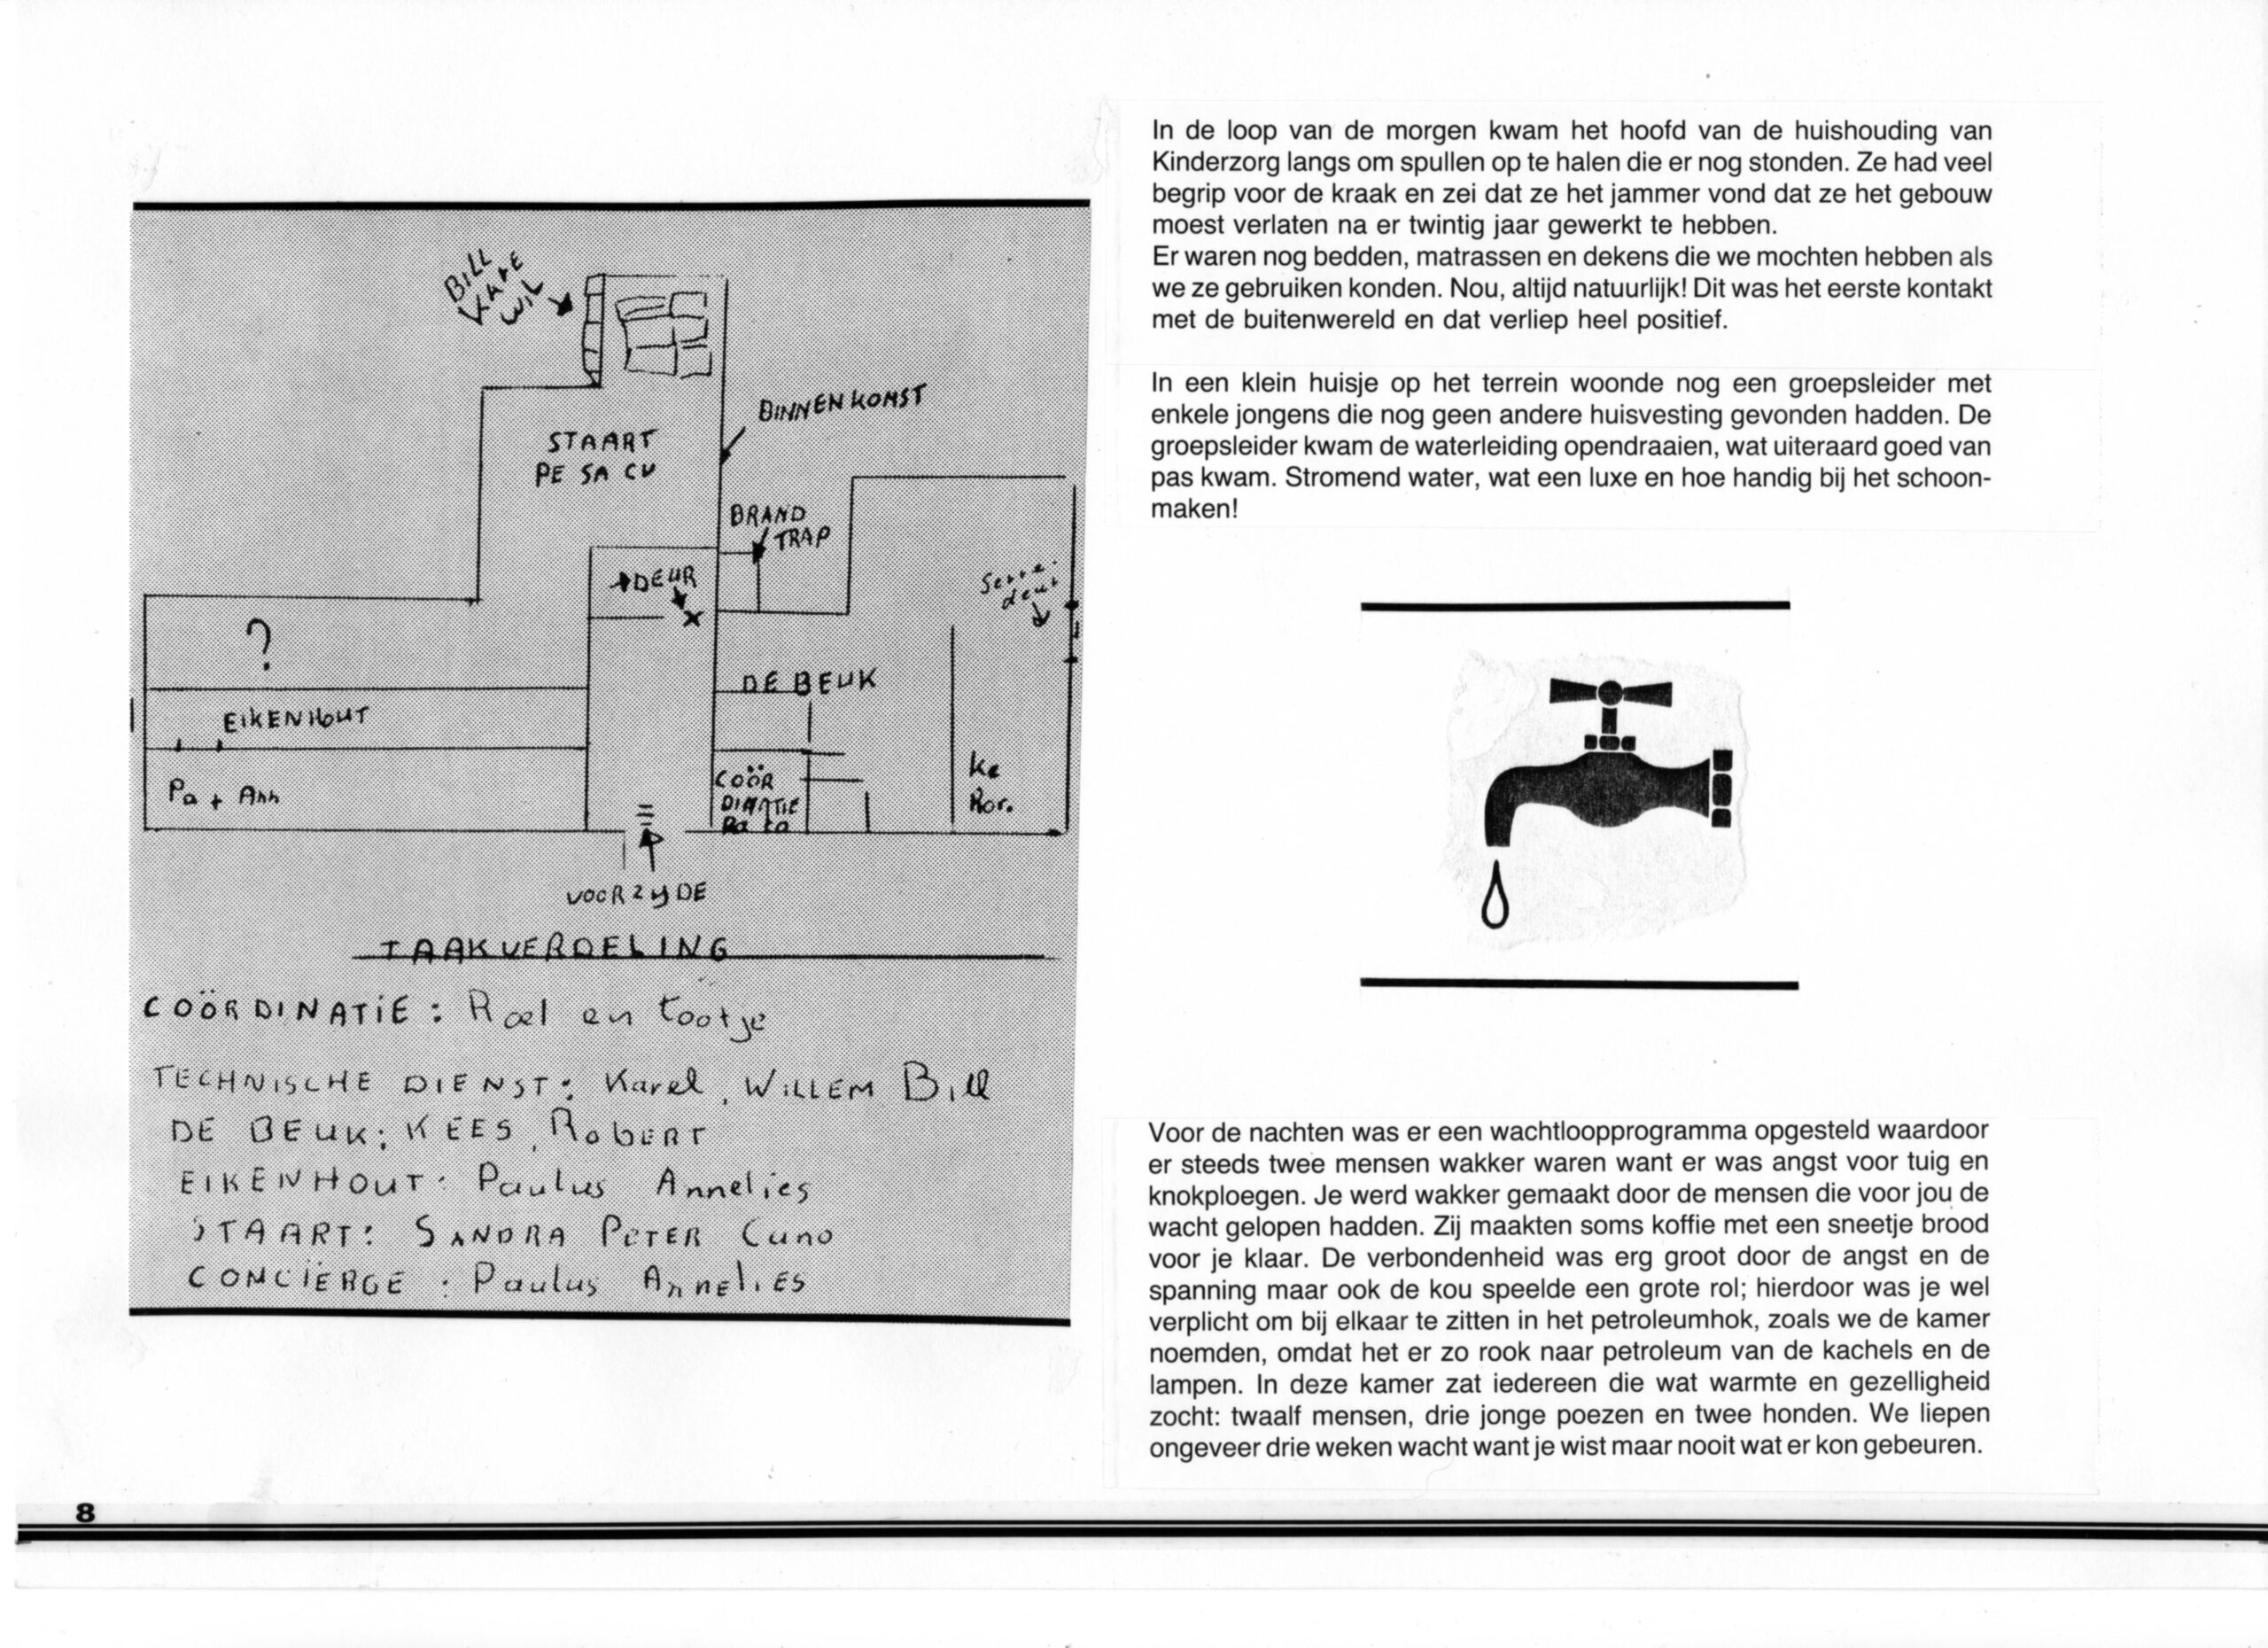 BILL
KARE
WIL
BINNENKOMST
STAART
PE SA CU
BRAND
TRAP
DEUR
Serre-
deur
?
DE BEUK
EIKENHOUT
Pa + Ann
COÖR
DINATIE
Ra to
Ke
Ror.
VOORZYDE
TAAKVERDELING
COÖRDINATIE: Roel en tootje
TECHNISCHE DIENST: Karel, WILLEM Bill
DE BEUK: KEES, RobERT
EIKENHOUT: Paulus Annelies
STAART: SANDRA PETER Cuno
CONCIËRGE: Paulus AnnELIES
In de loop van de morgen kwam het hoofd van de huishouding van
Kinderzorg langs om spullen op te halen die er nog stonden. Ze had veel
begrip voor de kraak en zei dat ze het jammer vond dat ze het gebouw
moest verlaten na er twintig jaar gewerkt te hebben.
Er waren nog bedden, matrassen en dekens die we mochten hebben als
we ze gebruiken konden. Nou, altijd natuurlijk! Dit was het eerste kontakt
met de buitenwereld en dat verliep heel positief.
In een klein huisje op het terrein woonde nog een groepsleider met
enkele jongens die nog geen andere huisvesting gevonden hadden. De
groepsleider kwam de waterleiding opendraaien, wat uiteraard goed van
pas kwam. Stromend water, wat een luxe en hoe handig bij het schoon-
maken!
Voor de nachten was er een wachtloopprogramma opgesteld waardoor
er steeds twee mensen wakker waren want er was angst voor tuig en
knokploegen. Je werd wakker gemaakt door de mensen die voor jou de
wacht gelopen hadden. Zij maakten soms koffie met een sneetje brood
voor je klaar. De verbondenheid was erg groot door de angst en de
spanning maar ook de kou speelde een grote rol; hierdoor was je wel
verplicht om bij elkaar te zitten in het petroleumhok, zoals we de kamer
noemden, omdat het er zo rook naar petroleum van de kachels en de
lampen. In deze kamer zat iedereen die wat warmte en gezelligheid
zocht: twaalf mensen, drie jonge poezen en twee honden. We liepen
ongeveer drie weken wacht want je wist maar nooit wat er kon gebeuren.
8